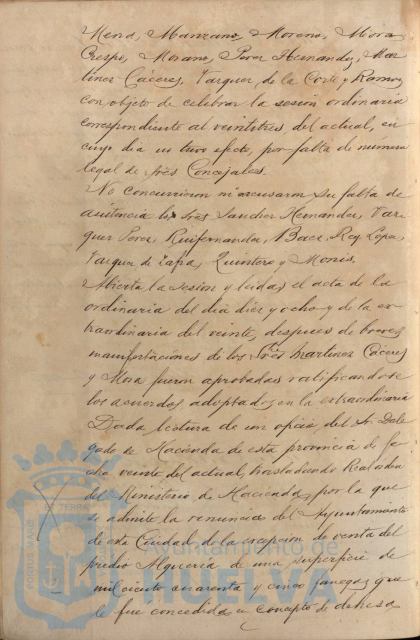 Mena, Manzano, Moreno, Mora
Crespo, Morano, Perez Hernandez, Mar-
tinez Caceres, Vazquez de la Corte y Ramos,
con objeto de celebrar la sesión ordinaria
correspondiente al veintitres del actual, en
cuyo dia no tuvo efecto, por falta de numero
legal de Sres Concejales.
No concurrieron ni excusaron su falta de
asistencia los Sres Sanchez Hernandez, Vaz-
quez Perez, Ruifernandez, Baez, Rey, Lopez,
Vazquez de Zafra, Quintero y Monis.
Abierta la sesion y leidas el acta de la
ordinaria del dia diez y ocho y de la ex-
traordinaria del veinte, despues de breves
manifestaciones de los Sres Martinez Caceres
y Mora fueron aprobadas ratificandose
los acuerdos adoptados en la extraordinaria
Dada lectura de un oficio del Sr. Dele-
gado de Hacienda de esta provincia de fe-
cha veinte del actual, trasladando Real orden
del Ministerio de Hacienda, por la que
se admite la renuncia del Ayuntamiento
de esta Ciudad de la excepcion de venta del
predio Alqueria de una superficie de
mil ciento cuarenta y cinco fanegas que
le fue concedida en concepto de dehesa
Ayuntamiento de
HUELVA